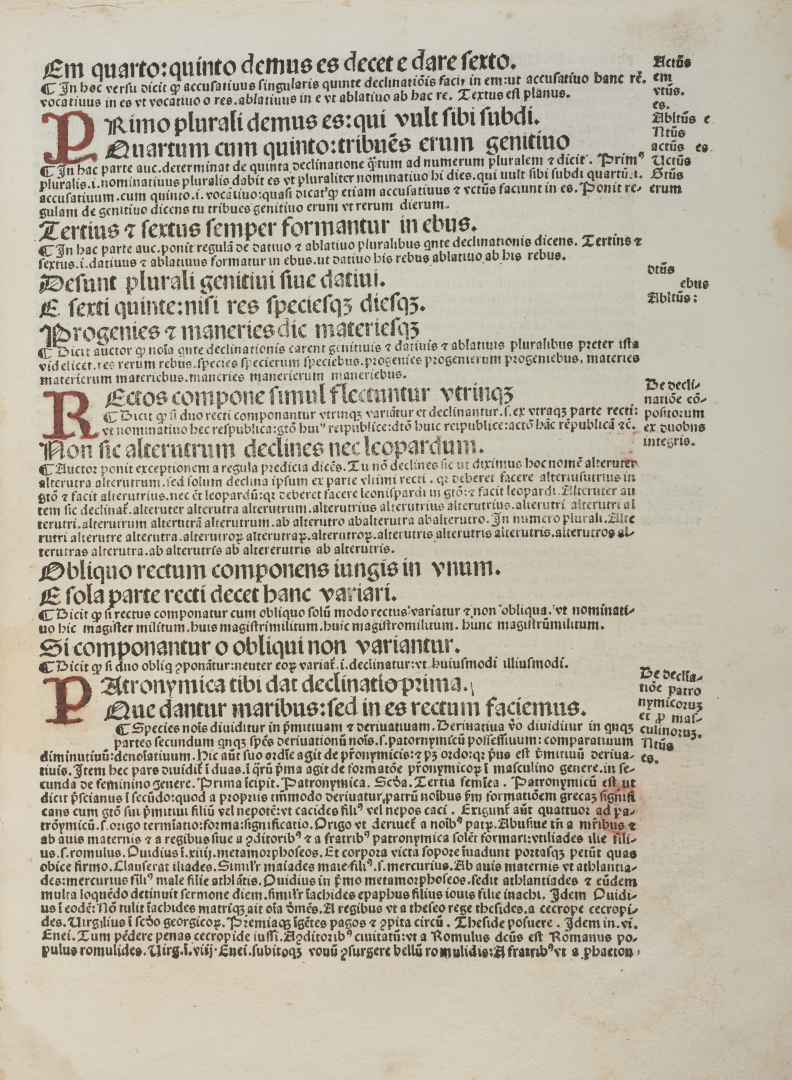 Em quarto:quinto demus es decet e dare sexto.
¶ In hoc versu dicit ꝙ accusatiuus singularis quinte declinatiõis facit in em:ut accusatiuo hanc rẽ.
vocatiuus in es vt vocatiuo o res.ablatiuus in e vt ablatiuo ab hac re. Textus est planus.
Actũs
em
vtũs.
es.
PRimo plurali demus es:qui vult sibi subdi.
Quartum cum quinto:tribuẽs erum genitiuo
¶ In hac parte auc.determinat de quinta declinatione q̃tum ad numerum pluralem ⁊ dicit. Primꝰ
pluralis.i.nominatiuus pluralis dabit es vt pluraliter nominatiuo hi dies.qui uult sibi subdi quartũ.i.
accusatiuum.cum quinto.i.vocatiuo:quasi dicat ꝙ etiam accusatiuus ⁊ vctũs faciunt in es. Ponit re-
gulam de genitiuo dicens tu tribues genitiuo erum vt rerum dierum.
Abltũs e
Ntũs
actũs es
Uctũs
Gtũs
erum
Tertius ⁊ sextus semper formantur in ebus.
¶ In hac parte auc.ponit regulã de datiuo ⁊ ablatiuo pluralibus qnte declinationis dicens. Tertius ⁊
sextus.i.datiuus ⁊ ablatiuus formatur in ebus.ut datiuo his rebus ablatiuo ab his rebus.
dtũs
ebus
Abltũs:
Desunt plurali genitiui siue datiui.
E sexti quinte:nisi res speciesqꝫ diesqꝫ.
Progenies ⁊ maneries dic materiesqꝫ
¶ Dicit auctor ꝙ noĩa qnte declinationis carent genitiuis ⁊ datiuis ⁊ ablatiuis pluralibus preter ista
videlicet.res rerum rebus.species specierum speciebus.progenies progenierum progeniebus, materies
materierum materiebus.maneries manerierum maneriebus.
REctos compone simul flectuntur vtrinqꝫ
¶ Dicit ꝙ si duo recti componantur vtrinqꝫ variãtur et declinantur.s.ex vtraqꝫ parte recti:
vt nominatiuo hec respublica:gtõ huiꝰ reipublice:dtõ huic reipublice:actõ hãc rẽpublicã ⁊c.
De decli-
natiõe cõ-
positorum
ex duobus
integris.
Non sic alterutrum declines nec leopardum.
¶ Auctor ponit exceptionem a regula predicta dicẽs. Tu nõ declines sic ut diximus hoc nomẽ alteruter
alterutra alterutrum.sed solum declina ipsum ex parte vltimi recti. qr deberet facere alteriusutrius in
gtõ ⁊ facit alterutrius.nec ẽt leopardũ:qr deberet facere leonispardi in gtõ:⁊ facit leopardi. Alteruter au
tem sic declinat̃.alteruter alterutra alterutrum.alterutrius alterutrius alterutrius.alterutri alterutri al
terutri.alterutrum alterutrã alterutrum.ab alterutro abalterutra abalterutro. In numero plurali. Alte
rutri alterutre alterutra.alterutroꝝ alterutraꝝ.alterutroꝝ.alterutris alterutris alterutris.alterutros al-
terutras alterutra.ab alterutris ab altererutris ab alterutris.
Obliquo rectum componens iungis in vnum.
E sola parte recti decet hanc variari.
¶ Dicit ꝙ si rectus componatur cum obliquo solũ modo rectus variatur ⁊ non obliqua. vt nominati-
uo hic magister militum.huis magistrimilitum.huic magistromilitum. hunc magistrũmilitum.
Si componantur o obliqui non variantur.
¶ Dicit ꝙ si duo obliq̃ ꝯponãtur:neuter eoꝝ variat̃.i.declinatur:vt huiusmodi illiusmodi.
PAtronymica tibi dat declinatio prima.
Que dantur maribus:sed in es rectum faciemus.
De decla-
tiõe patro
nymicoruꝫ
et ꝓ mas-
culinoruꝫ.
Ntũs
es.
¶ Species noĩs diuiditur in p̃mitiuam ⁊ deriuatiuam. Deriuatiua ṽo diuiditur in qnqꝫ
partes secundum qnqꝫ spẽs deriuationũ noĩs.s.patronymicũ possessiuum: comparatiuum
diminutiuũ:denoĩatiuum. Hic aũt suo ordĩe agit de pr̃onymicis:⁊ pꝫ ordo:qr p̃us est p̃mitiuũ deriua-
tiuis. Item hec pars diuidit̃ ĩ duas. ĩ q̃rũ p̃ma agit de formatõe pr̃onymicoꝝ ĩ masculino genere.in se-
cunda de feminino genere. Prima ĩcipit. Patronymica. Scḋa. Tertia semĩea. Patronymicũ est ut
dicit p̃scianus ĩ secũdo:quod a propriis tm̃modo deriuatur,patrũ noĩbus ẽm formatiõem grecaꝫ signifi
cans cum gtõ sui p̃mitiui filiũ vel nepotẽ:vt eacides filiꝰ vel nepos eaci. Exigunt̃ aũt quattuor ad pa-
trõymicũ.s.origo termĩatio:forma:significatio. Origo vt deriuet̃ a noĩbꝰ patꝝ. Abusiue tñ a mr̃ibus ⁊
ab auis maternis ⁊ a regibus siue a ꝯditoribꝰ ⁊ a fratribꝰ patronymica solẽt formari:vt iliades ilie fili-
us.s.romulus. Ouidius l.xiiij.metamorphoseos. Et corpora victa sopore ĩuadunt portasqꝫ petũt quas
obice firmo. Clauserat iliades. Simil'r maiades maie filiꝰ.s.mercurius. Ab auis maternis vt athlantia-
des:mercurius filiꝰ maie filie athlãtis. Ouidius in p̃mo metamorphoseos.sedit athlantiades ⁊ eũdem
multa loquẽdo detinuit sermone diem.simil'r ĩachides epaphus filius iouis filie inachi. Idem Ouidi-
us ĩ eodẽ: Nõ tulit ĩachides matriqꝫ ait oĩa dẽmẽs. A regibus vt a theseo rege thesides.a cecrope cecropi-
des. Uirgilius ĩ scḋo georgicoꝝ. Premiaqꝫ ĩgẽtes pagos ⁊ ꝯpita circũ. Theside posuere. Idem in.vi.
Enei. Tum pẽdere penas cecropide iussi. A ꝯditoribꝰ ciuitatũ:vt a Romulus dc̃us est Romanus po-
pulus romulides. Uirg.l.viij. Enei.subitoqꝫ vouũ ꝯsurgere bellũ romulidis:A fratribꝰ vt a phaeton